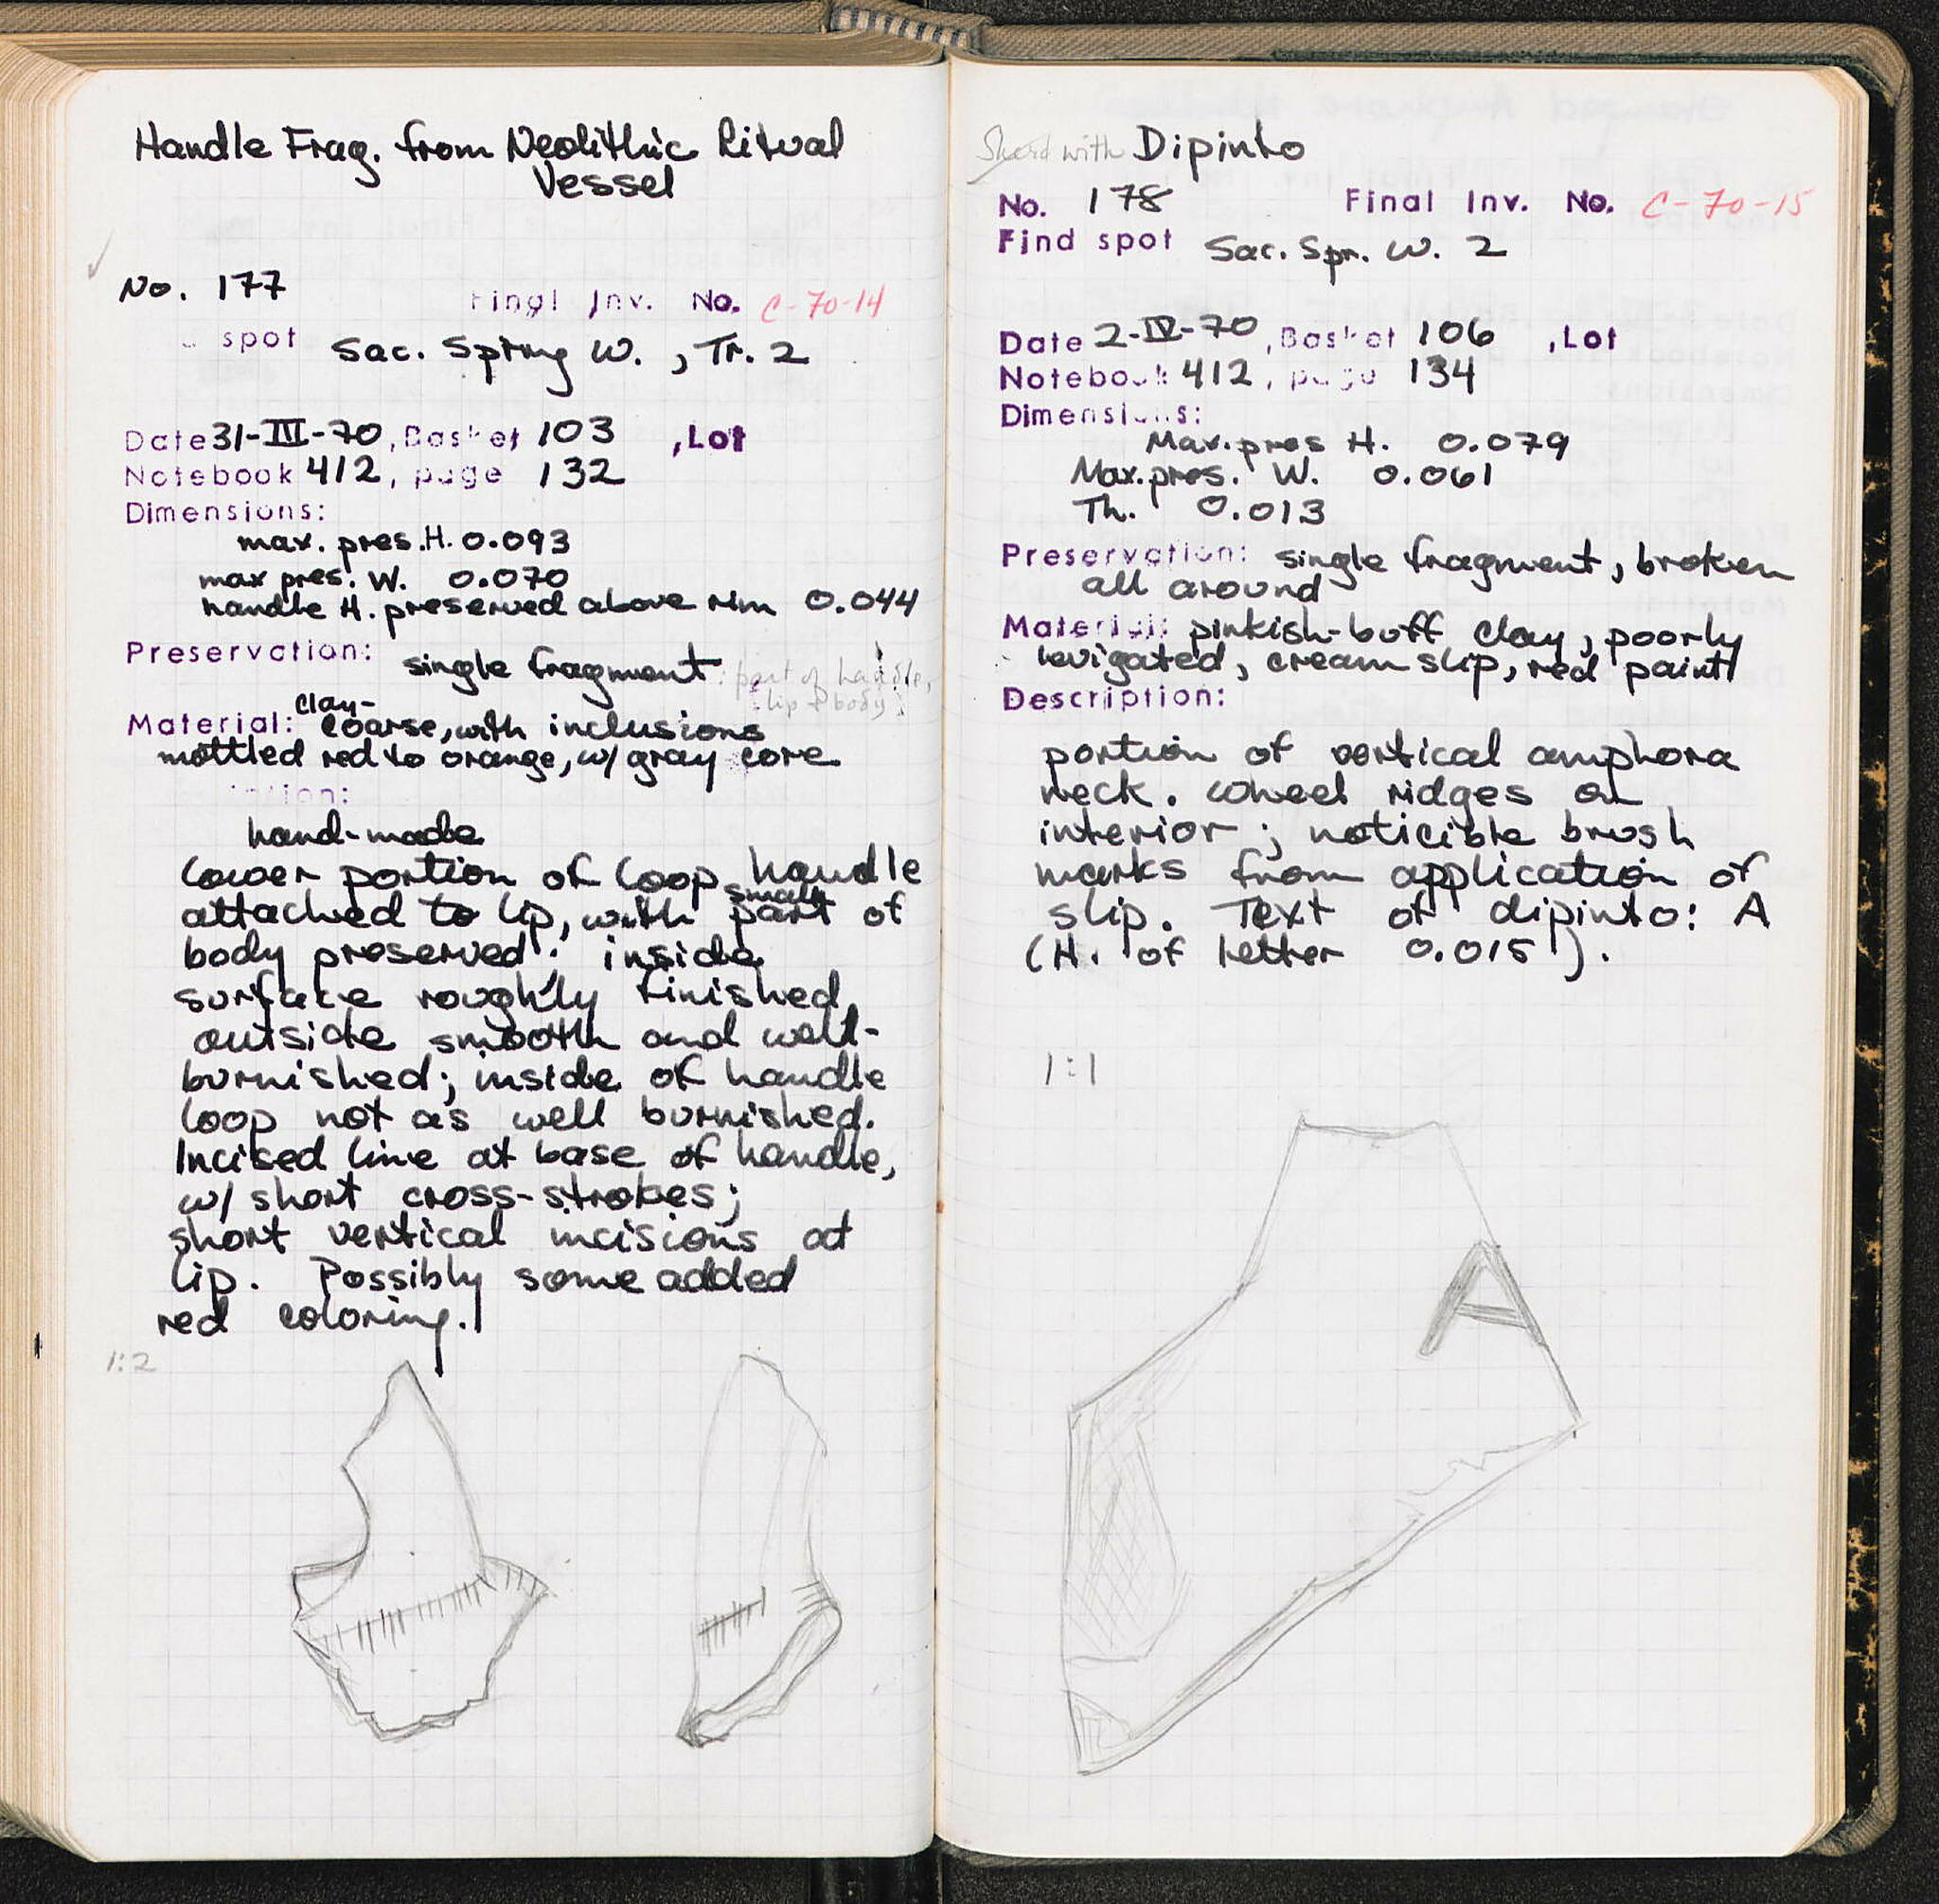 Handle Frag. from Neolithic Ritual
Vessel
No. 177
Final Inv. No. C-70-14
spot Sac. Spring W., Tr. 2
Date 31-III-70, Basket 103 , Lot
Notebook 412, page 132
Dimensions:
max. pres. H. 0.093
max pres. W. 0.070
handle H. preserved above rim 0.044
Preservation: single fragment: part of handle,
lip & body.
clay-
Material: coarse, with inclusions
mottled red to orange, w/ gray core
tion:
hand-made
lower portion of loop handle
small
attached to lip, with part of
body preserved; inside
surface roughly finished,
outside smooth and well-
burnished; inside of handle
loop not as well burnished.
Incised line at base of handle,
w/ short cross-strokes;
short vertical incisions at
lip. Possibly some added
red coloring.
1:2
Sherd with Dipinto
No. 178 Final Inv. No. C-70-15
Find spot Sac. Spr. W. 2
Date 2-IV-70, Basket 106 , Lot
Notebook 412, page 134
Dimensions:
Max. pres H. 0.079
Max. pres. W. 0.061
Th. 0.013
Preservation: single fragment, broken
all around
Material: pinkish-buff clay, poorly
levigated, cream slip, red paint
Description:
portion of vertical amphora
neck. Wheel ridges on
interior; noticible brush
marks from application of
slip. Text of dipinto: A
(H. of letter 0.015).
1:1
A